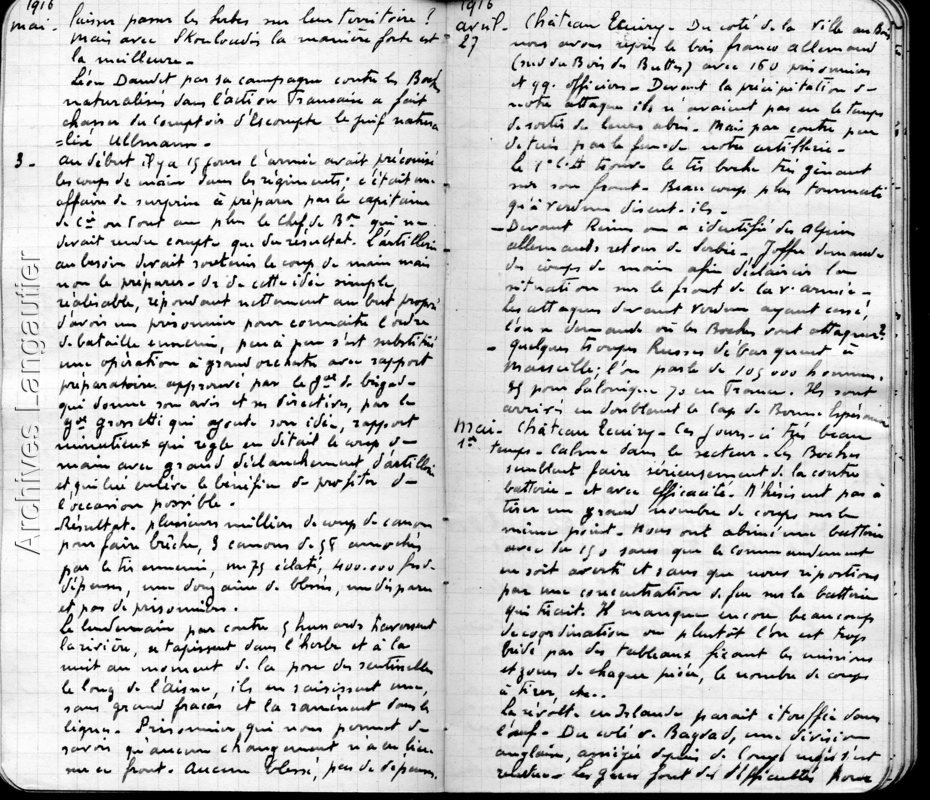 1916
mai. laisser passer les Serbes sur leur territoire ?
mais avec Skouloudis la manière forte est
la meilleure.
Léon Daudet par sa campagne contre les Boches
naturalisés dans l'action Francaise a fait
chasser du comptoir d'Escompte le juif natura
=lisé Ullmann.
3 - au début il y a 15 jours l'armée avait préconisé
les coups de main dans les régiments ; c'était une
affaire de surprise à préparer par le capitaine
de Cie ou tout au plus le chef de Bon qui ne
devait rendre compte que du résultat. L'artillerie
au besoin devait soutenir le coup de main mais
non le préparer. De cette idée simple,
réalisable, répondant nettement au but proposé
d'avoir un prisonnier pour connaître l'ordre
de bataille ennemi, peu à peu s'est substitué
une opération à grand orchestre avec rapport
préparatoire approuvé par le gal de brigade
qui donne son avis et ses directives, par le
gal Grossetti qui ajoute son idée, rapport
minutieux qui règle en détail le coup de
main avec grand déclanchement d'artillerie
et qui lui enlève le bénéfice de profiter de
l'occasion possible.
Résultat. plusieurs milliers de coups de canon
pour faire brèche, 3 canons de 58 amochés
par le tir ennemi, un 75 éclaté, 400.000 frs de
dépenses, une douzaine de blessés, un disparu
et pas de prisonniers.
Le lendemain par contre 5 hussards traversent
la rivière, se tapissent dans l'herbe et à la
nuit au moment de la pose des sentinelles
le long de l'Aisne, ils en saisissent une,
sans grand fracas et la ramènent dans les
lignes. Prisonnier, qui nous permet de
savoir qu'aucun changement n'a eu lieu
sur ce front. Aucun blessé, pas de dépenses.
1916
avril. Château - Du coté de la Ville au Bois
27 nous avons repris le bois franco allemand
(sud du Bois des Buttes) avec 160 prisonniers
et qq. officiers. Devant la précipitation de
notre attaque ils n'avaient pas eu le temps
de sortir de leurs abris. Mais par contre peu
de tués par le feu de notre artillerie.
Le 1er C.A trouve le tir boche très gênant
sur son front. Beaucoup plus tourmenté
qu'à Verdun disent-ils.
- Devant Reims on a identifié des Alpins
allemands retour de Serbie. Joffre demande
des coups de main afin d'éclaircir la
situation sur le front de la Ve armée.
Les attaques devant Verdun ayant cessé,
l'on se demande où les Boches vont attaquer ?
- quelques troupes Russes débarquent à
Marseille ; l'on parle de 105 000 hommes.
35 pour Salonique 70 en France. Ils sont
arrivés en doublant le Cap de Bonne Espérance
Mai - Château - Ces jours-ci très beau
1er temps. Calme dans le secteur. Les Boches
semblent faire sérieusement de la contre
batterie - et avec efficacité. N'hésitent pas à
tirer un grand nombre de coups sur le
même point. Nous ont abimé une batterie
avec du 150 sans que le commandement
en soit averti et sans que nous ripostions
par une concentration de feu sur la batterie
qui tirait. Il manque encore beaucoup
de coordination ou plutôt l'on est trop
bridé par des tableaux fixant les missions
et zones de chaque pièce, le nombre de coups
à tirer, etc..
La révolte en Irlande parait étouffée dans
l'œuf. Du coté de Bagdad, une division
anglaise, assiégée depuis de longs mois s'est
rendue. Les grecs font des difficultés pour
Archives Langautier